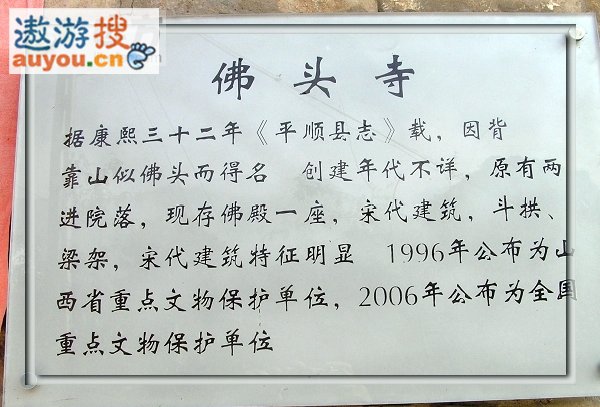 遨游搜
auyou.cn
佛头寺
据康熙三十二年《平顺县志》载，因背
靠山似佛头而得名 创建年代不详，原有两
进院落，现存佛殿一座，宋代建筑，斗拱、
梁架，宋代建筑特征明显 1996年公布为山
西省重点文物保护单位，2006年公布为全国
重点文物保护单位